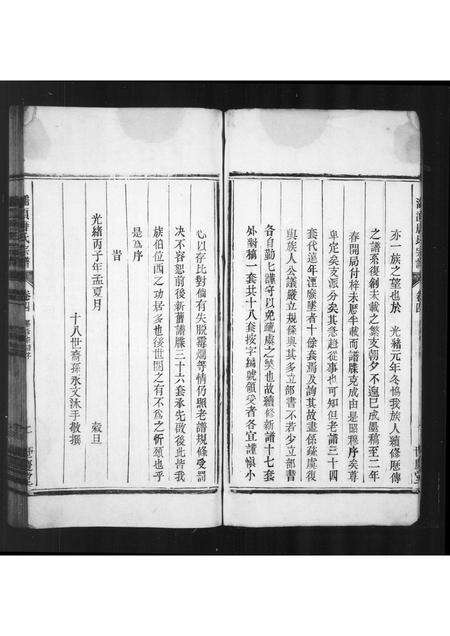 亦一族之望也於　光緒元年冬惕我族人續修歷傳
之譜系復創未載之繁支朝夕不遑已成墨稿至二年
春開局付梓未曆半載而譜牒克成由是昭穆序矣尊
卑定矣支源分矣其急趨從事也可知但老譜三十四
套代遠年湮廢墜者十餘套焉及詢其故盡係疎虞復
與族人公議嚴立規條與其多立部書不若少立部書
各自勤七謹守以免疏虞之弊也故續修新譜十七套
外剩稿一套共十八套按字編號領受者各宜謹愼小
心以存比對倘有失脫霉爛等情仍照老譜規條受罰
决不容恕前後新舊譜牒三十六套承先啟後此皆我
族伯位西之功居多也後世閱之有不為之忻頌也乎
是為序
旹
光緒丙子年孟夏月　穀旦
十八世裔孫永文詠手敬撰
卷四